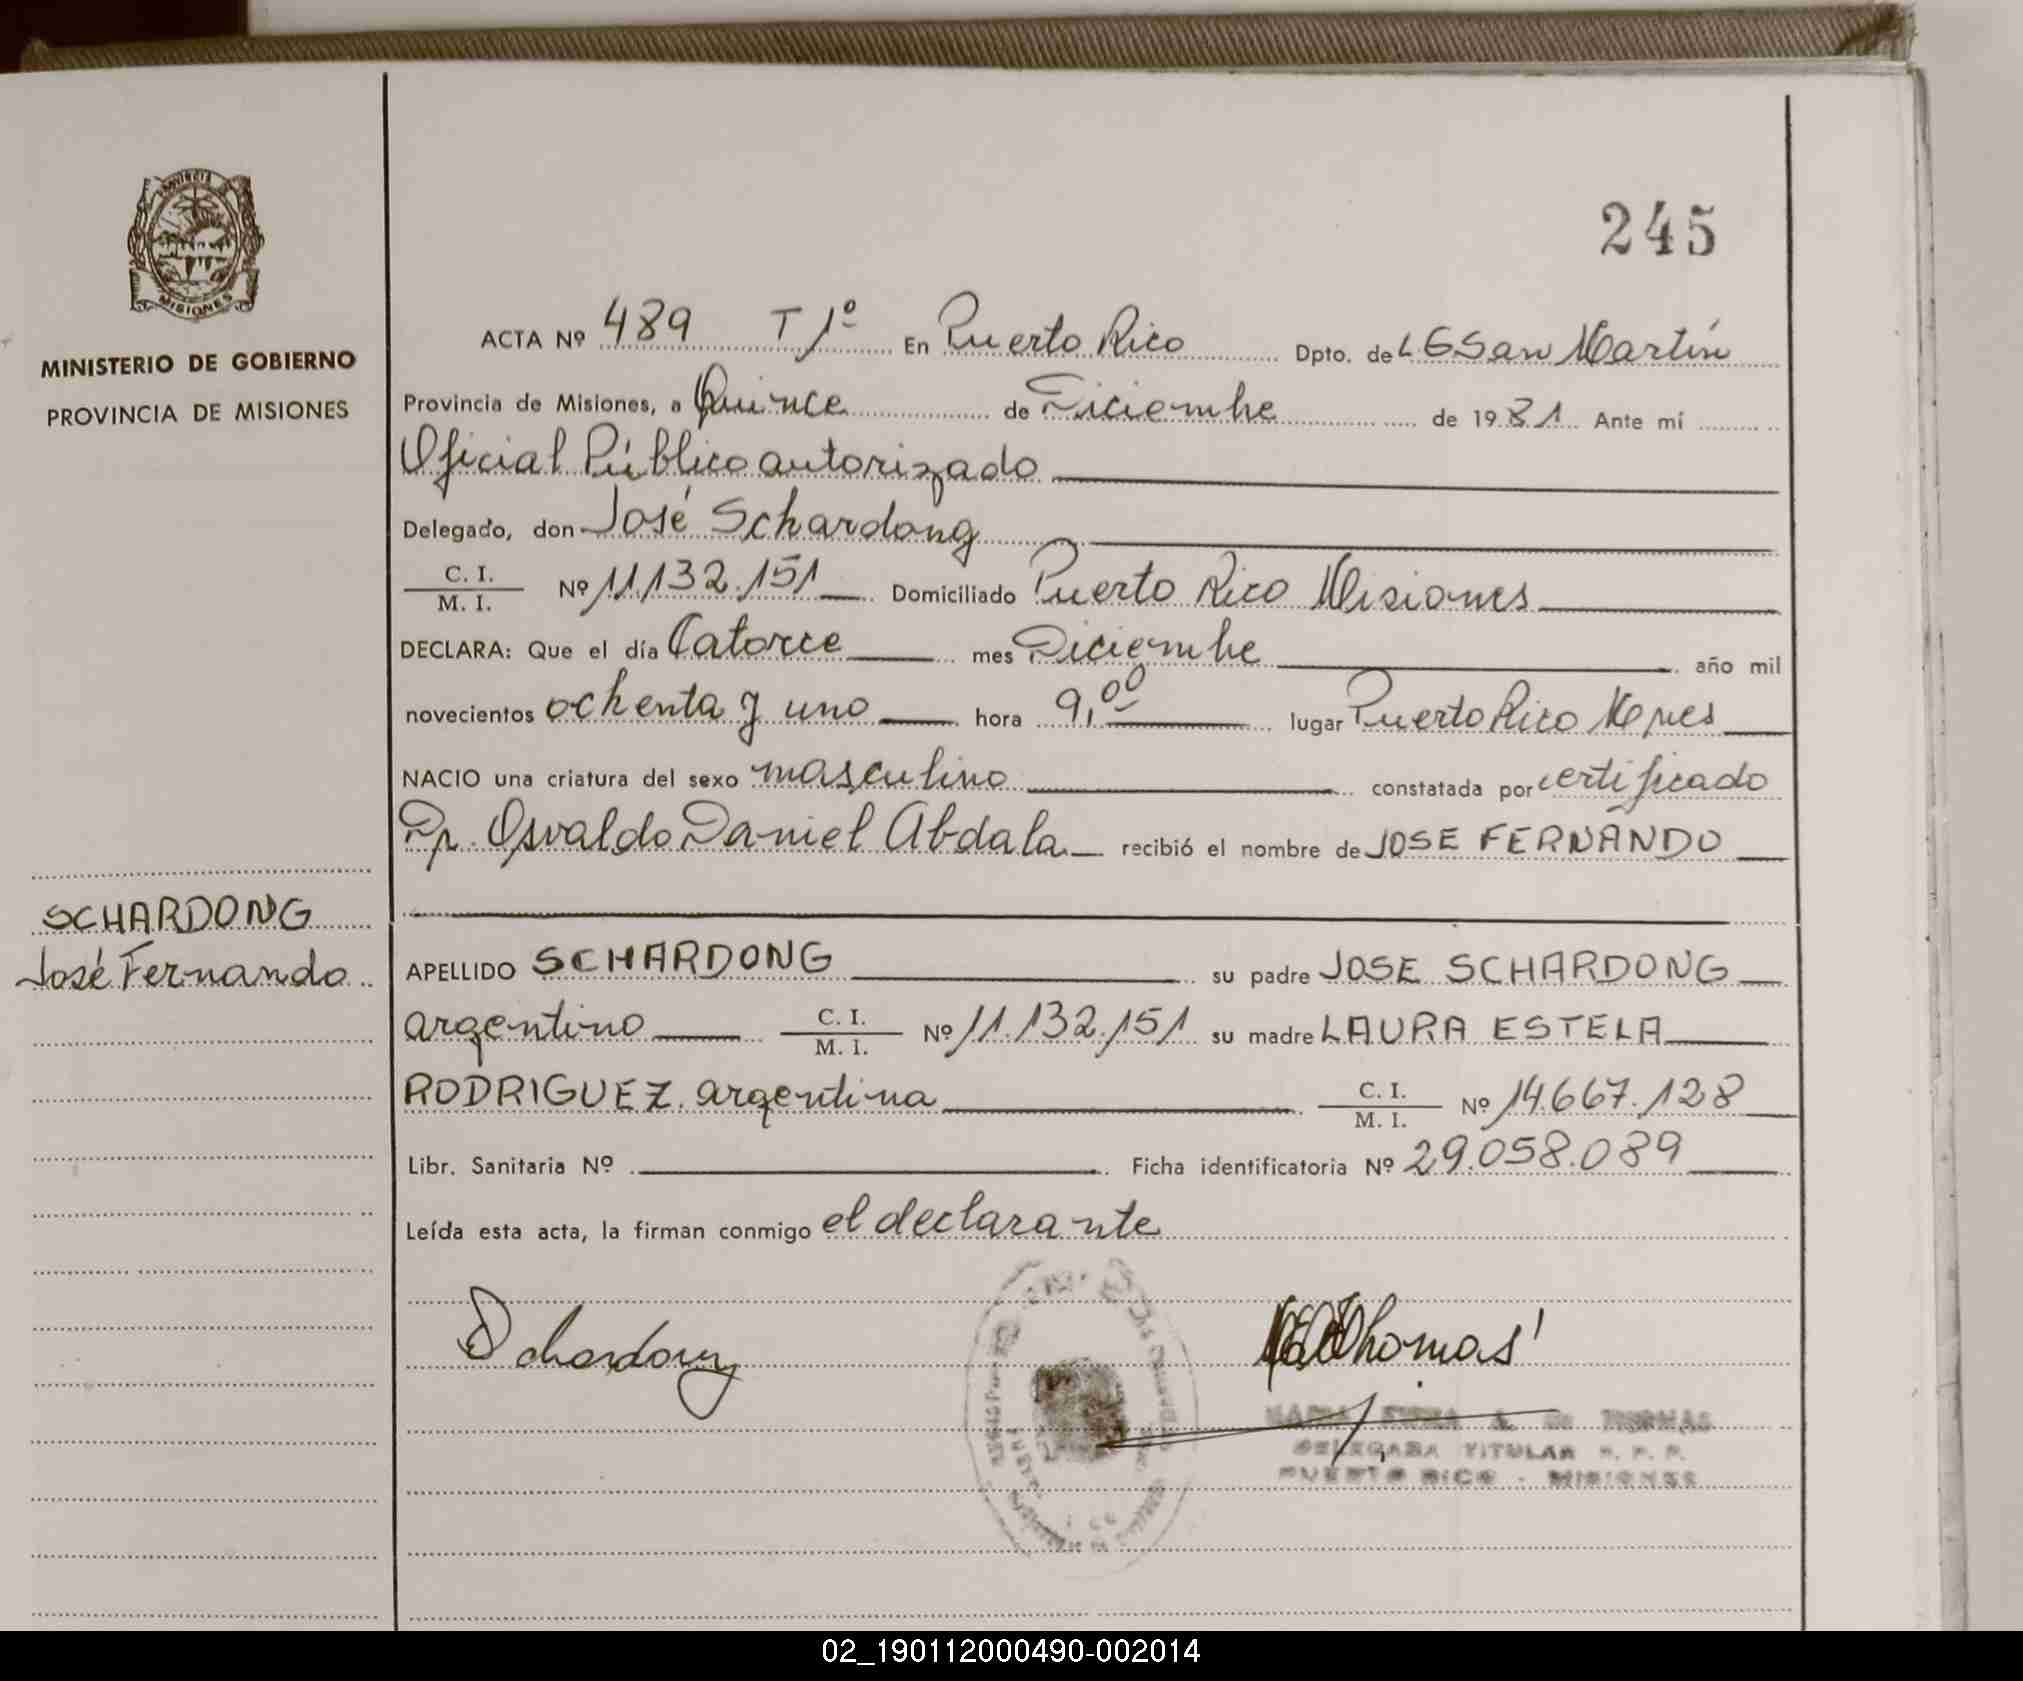 PROVINCIA DE
MISIONES
MINISTERIO DE GOBIERNO
PROVINCIA DE MISIONES
SCHARDONG
José Fernando
245
ACTA Nº 489 T 1º En Puerto Rico Dpto. de L G San Martín
Provincia de Misiones, a Quince de Diciembre de 1981 Ante mí
Oficial Público autorizado
Delegado, don José Schardong
C. I. / M. I. Nº 11.132.151 Domiciliado Puerto Rico Misiones
DECLARA: Que el día Catorce mes Diciembre año mil
novecientos ochenta y uno hora 9,00 lugar Puerto Rico Mnes
NACIO una criatura del sexo masculino constatada por certificado
Dr. Osvaldo Daniel Abdala recibió el nombre de JOSE FERNANDO
APELLIDO SCHARDONG su padre JOSE SCHARDONG
argentino C. I. / M. I. Nº 11.132.151 su madre LAURA ESTELA
RODRIGUEZ. argentina C. I. / M. I. Nº 14.667.128
Libr. Sanitaria Nº Ficha identificatoria Nº 29.058.089
Leída esta acta, la firman conmigo el declarante
Schardong Thomas
A. de THOMAS
DELEGADA TITULAR R. P. P.
PUERTO RICO - MISIONES
02_190112000490-002014